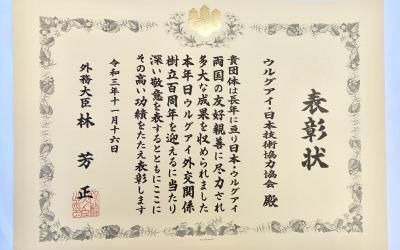 表彰状
ウルグアイ・日本技術協力協会 殿
貴団体は長年に亘り日本・ウルグアイ
両国の友好親善に尽力され
多大な成果を収められました
本年日ウルグアイ外交関係
樹立百周年を迎えるに当たり
深い敬意を表するとともにここに
その高い功績をたたえ表彰します
令和三年十一月十六日
外務大臣 林 芳正